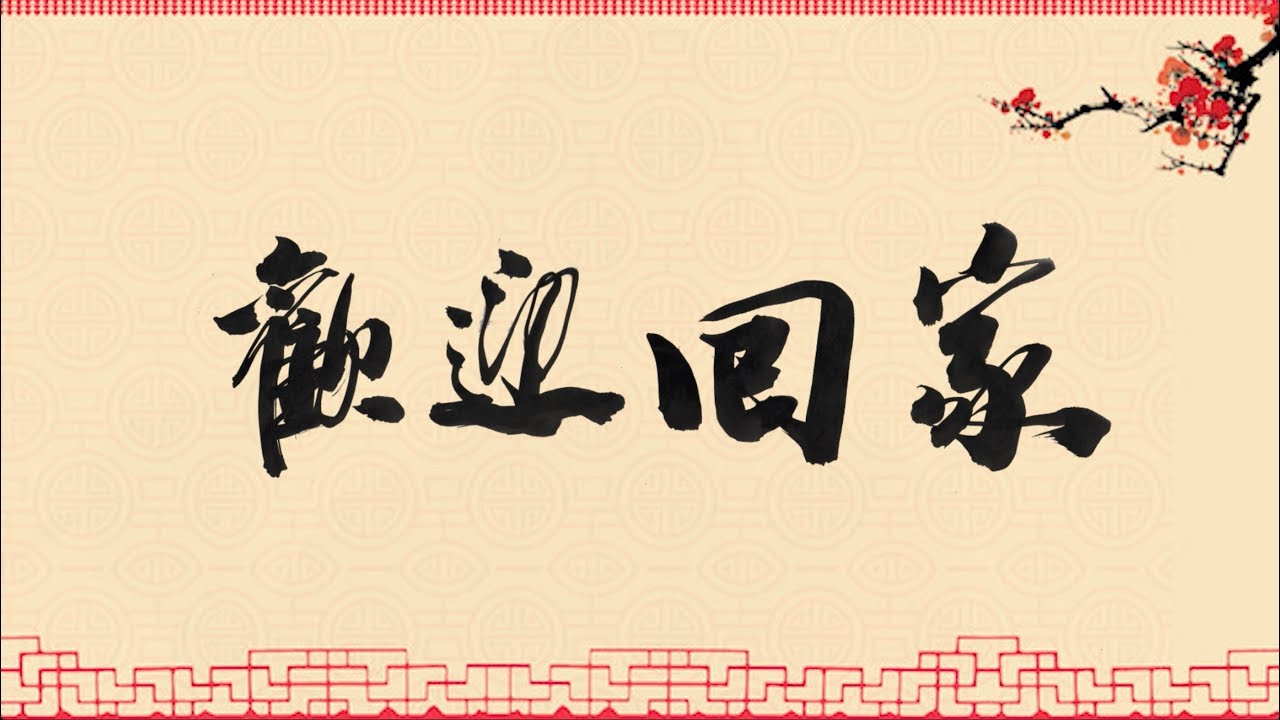 歡迎回家